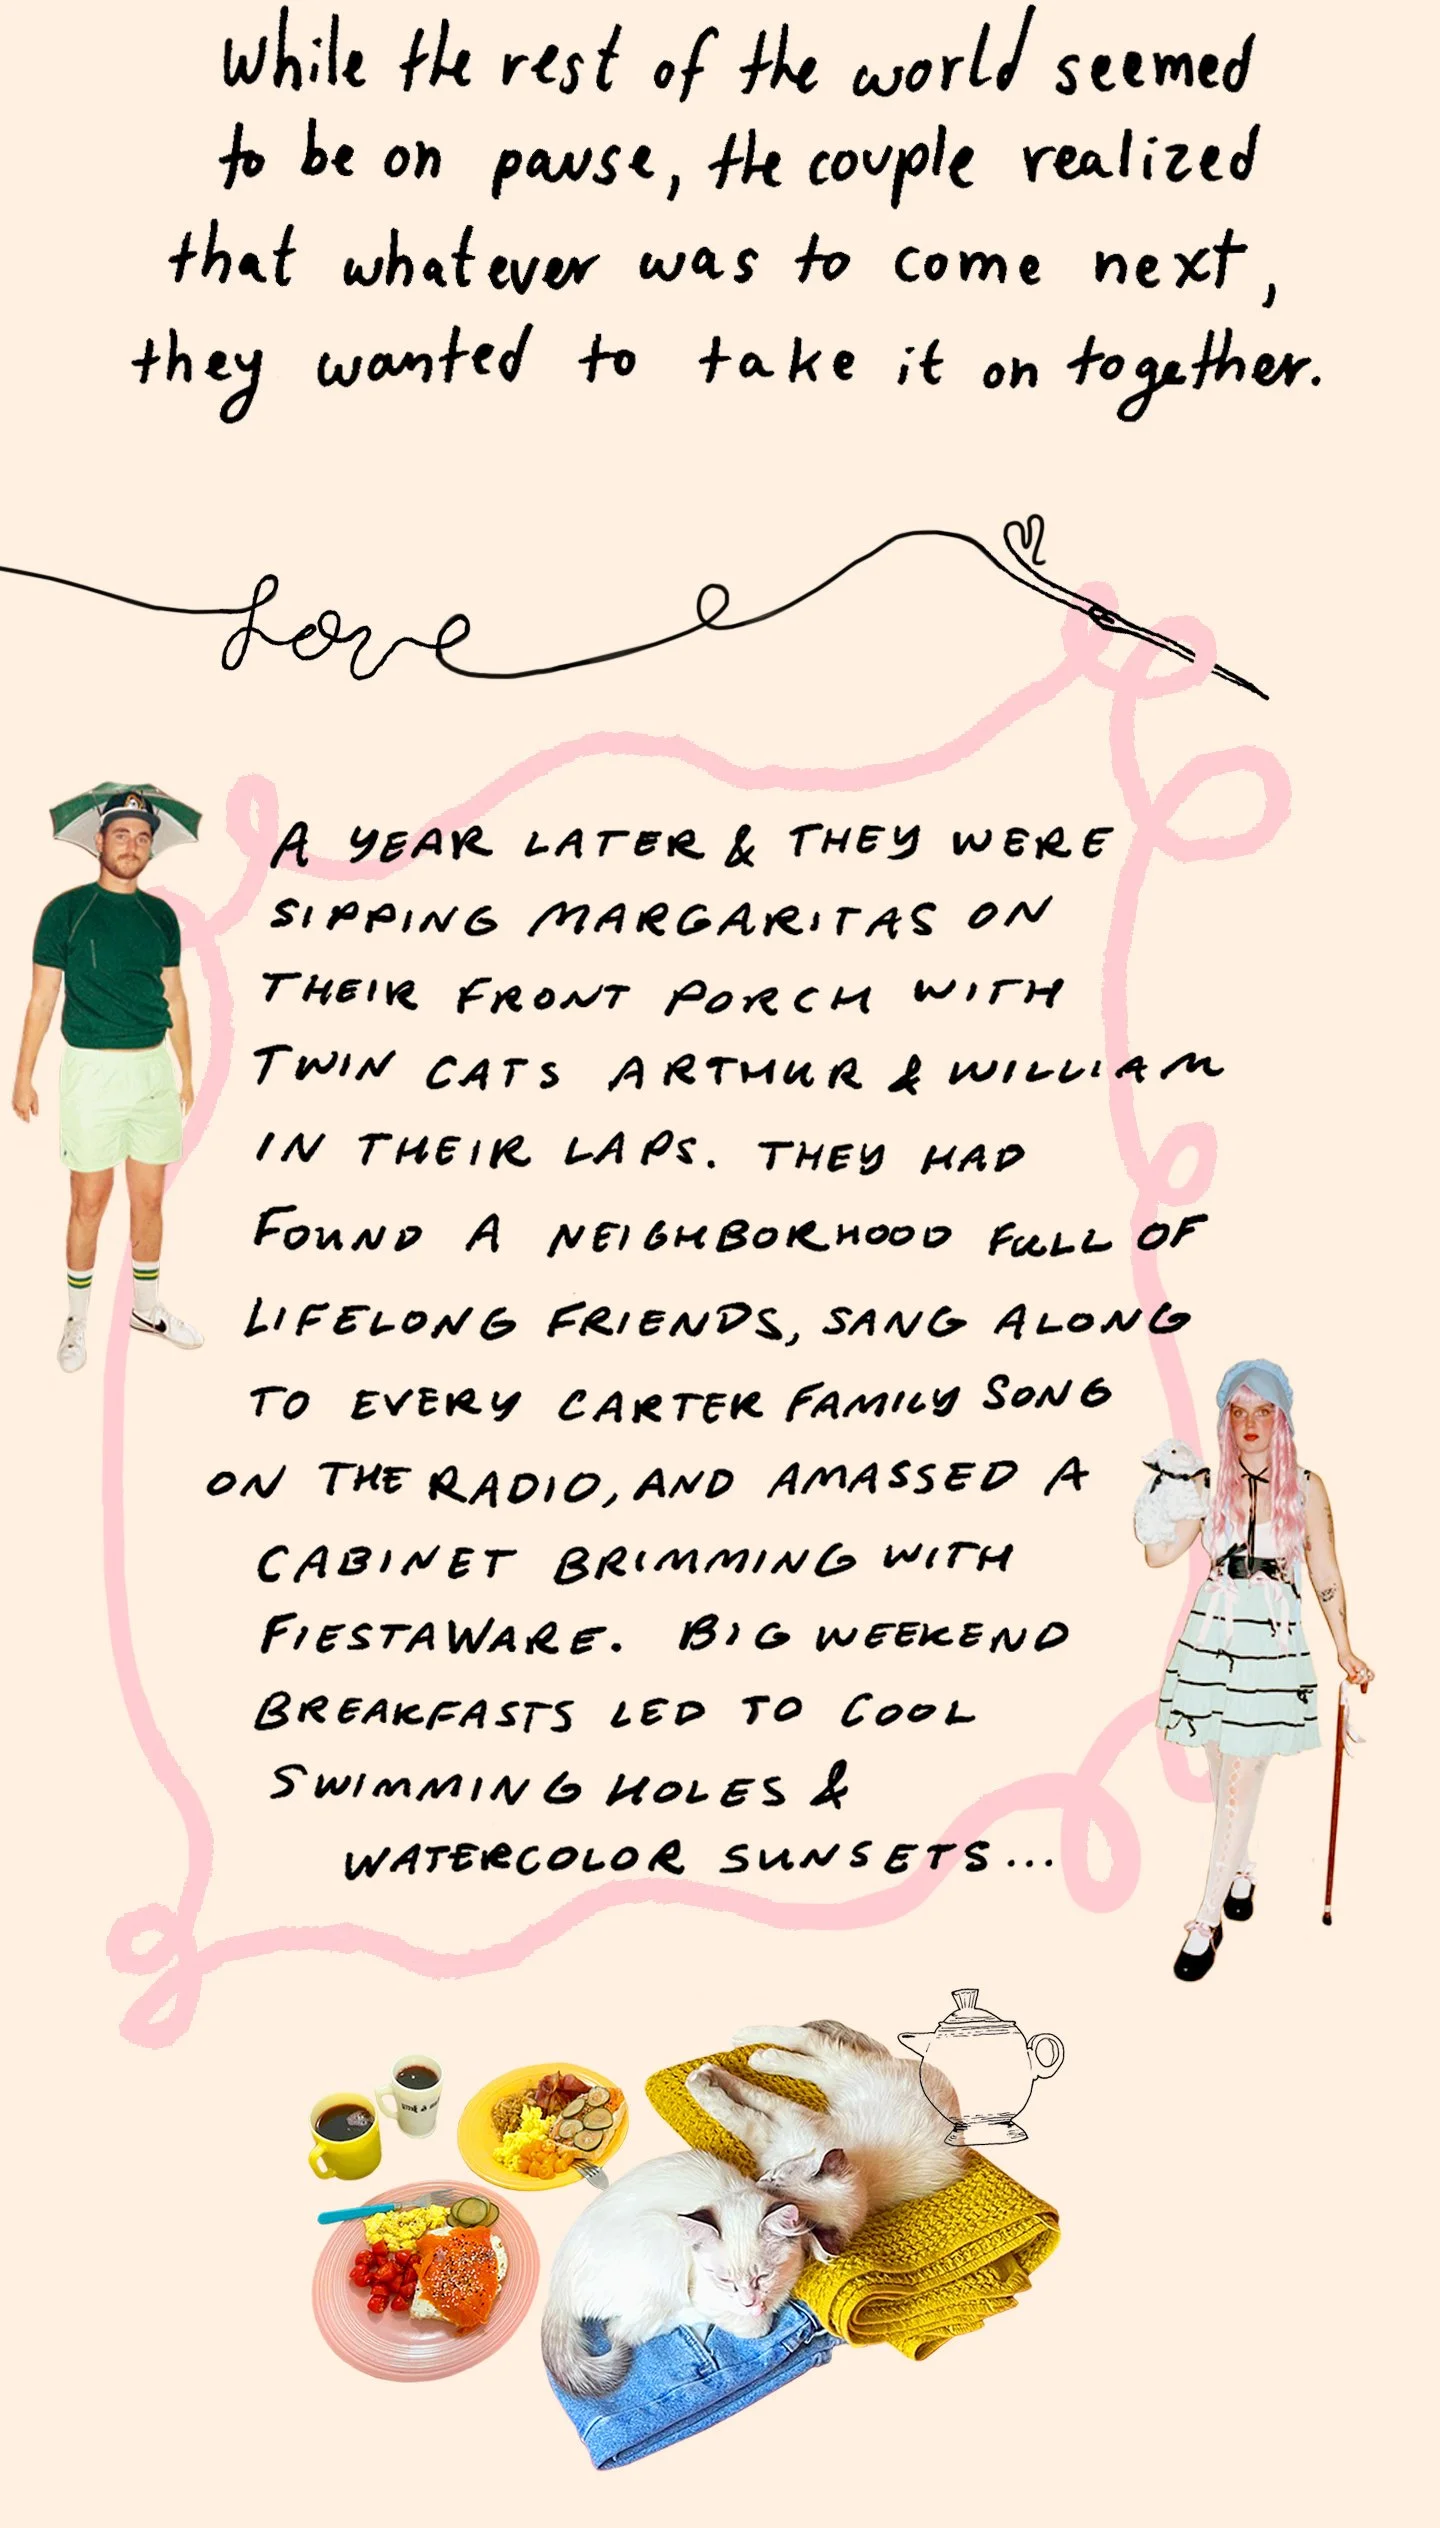 While the rest of the world seemed
to be on pause, the couple realized
that whatever was to come next,
they wanted to take it on together.
Love
A YEAR LATER & THEY WERE
SIPPING MARGARITAS ON
THEIR FRONT PORCH WITH
TWIN CATS ARTHUR & WILLIAM
IN THEIR LAPS. THEY HAD
FOUND A NEIGHBORHOOD FULL OF
LIFELONG FRIENDS, SANG ALONG
TO EVERY CARTER FAMILY SONG
ON THE RADIO, AND AMASSED A
CABINET BRIMMING WITH
FIESTAWARE. BIG WEEKEND
BREAKFASTS LED TO COOL
SWIMMING HOLES &
WATERCOLOR SUNSETS...